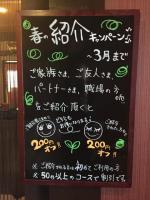 春の紹介キャンペーン♪
～3月まで
ご家族さま、ご友人さま、
パートナーさま、職場の方 etc
をご紹介頂くと
200円オフ!! 200円オフ!!
※ご紹介される方は初めてご利用の方
※50分以上のコースで割引です。